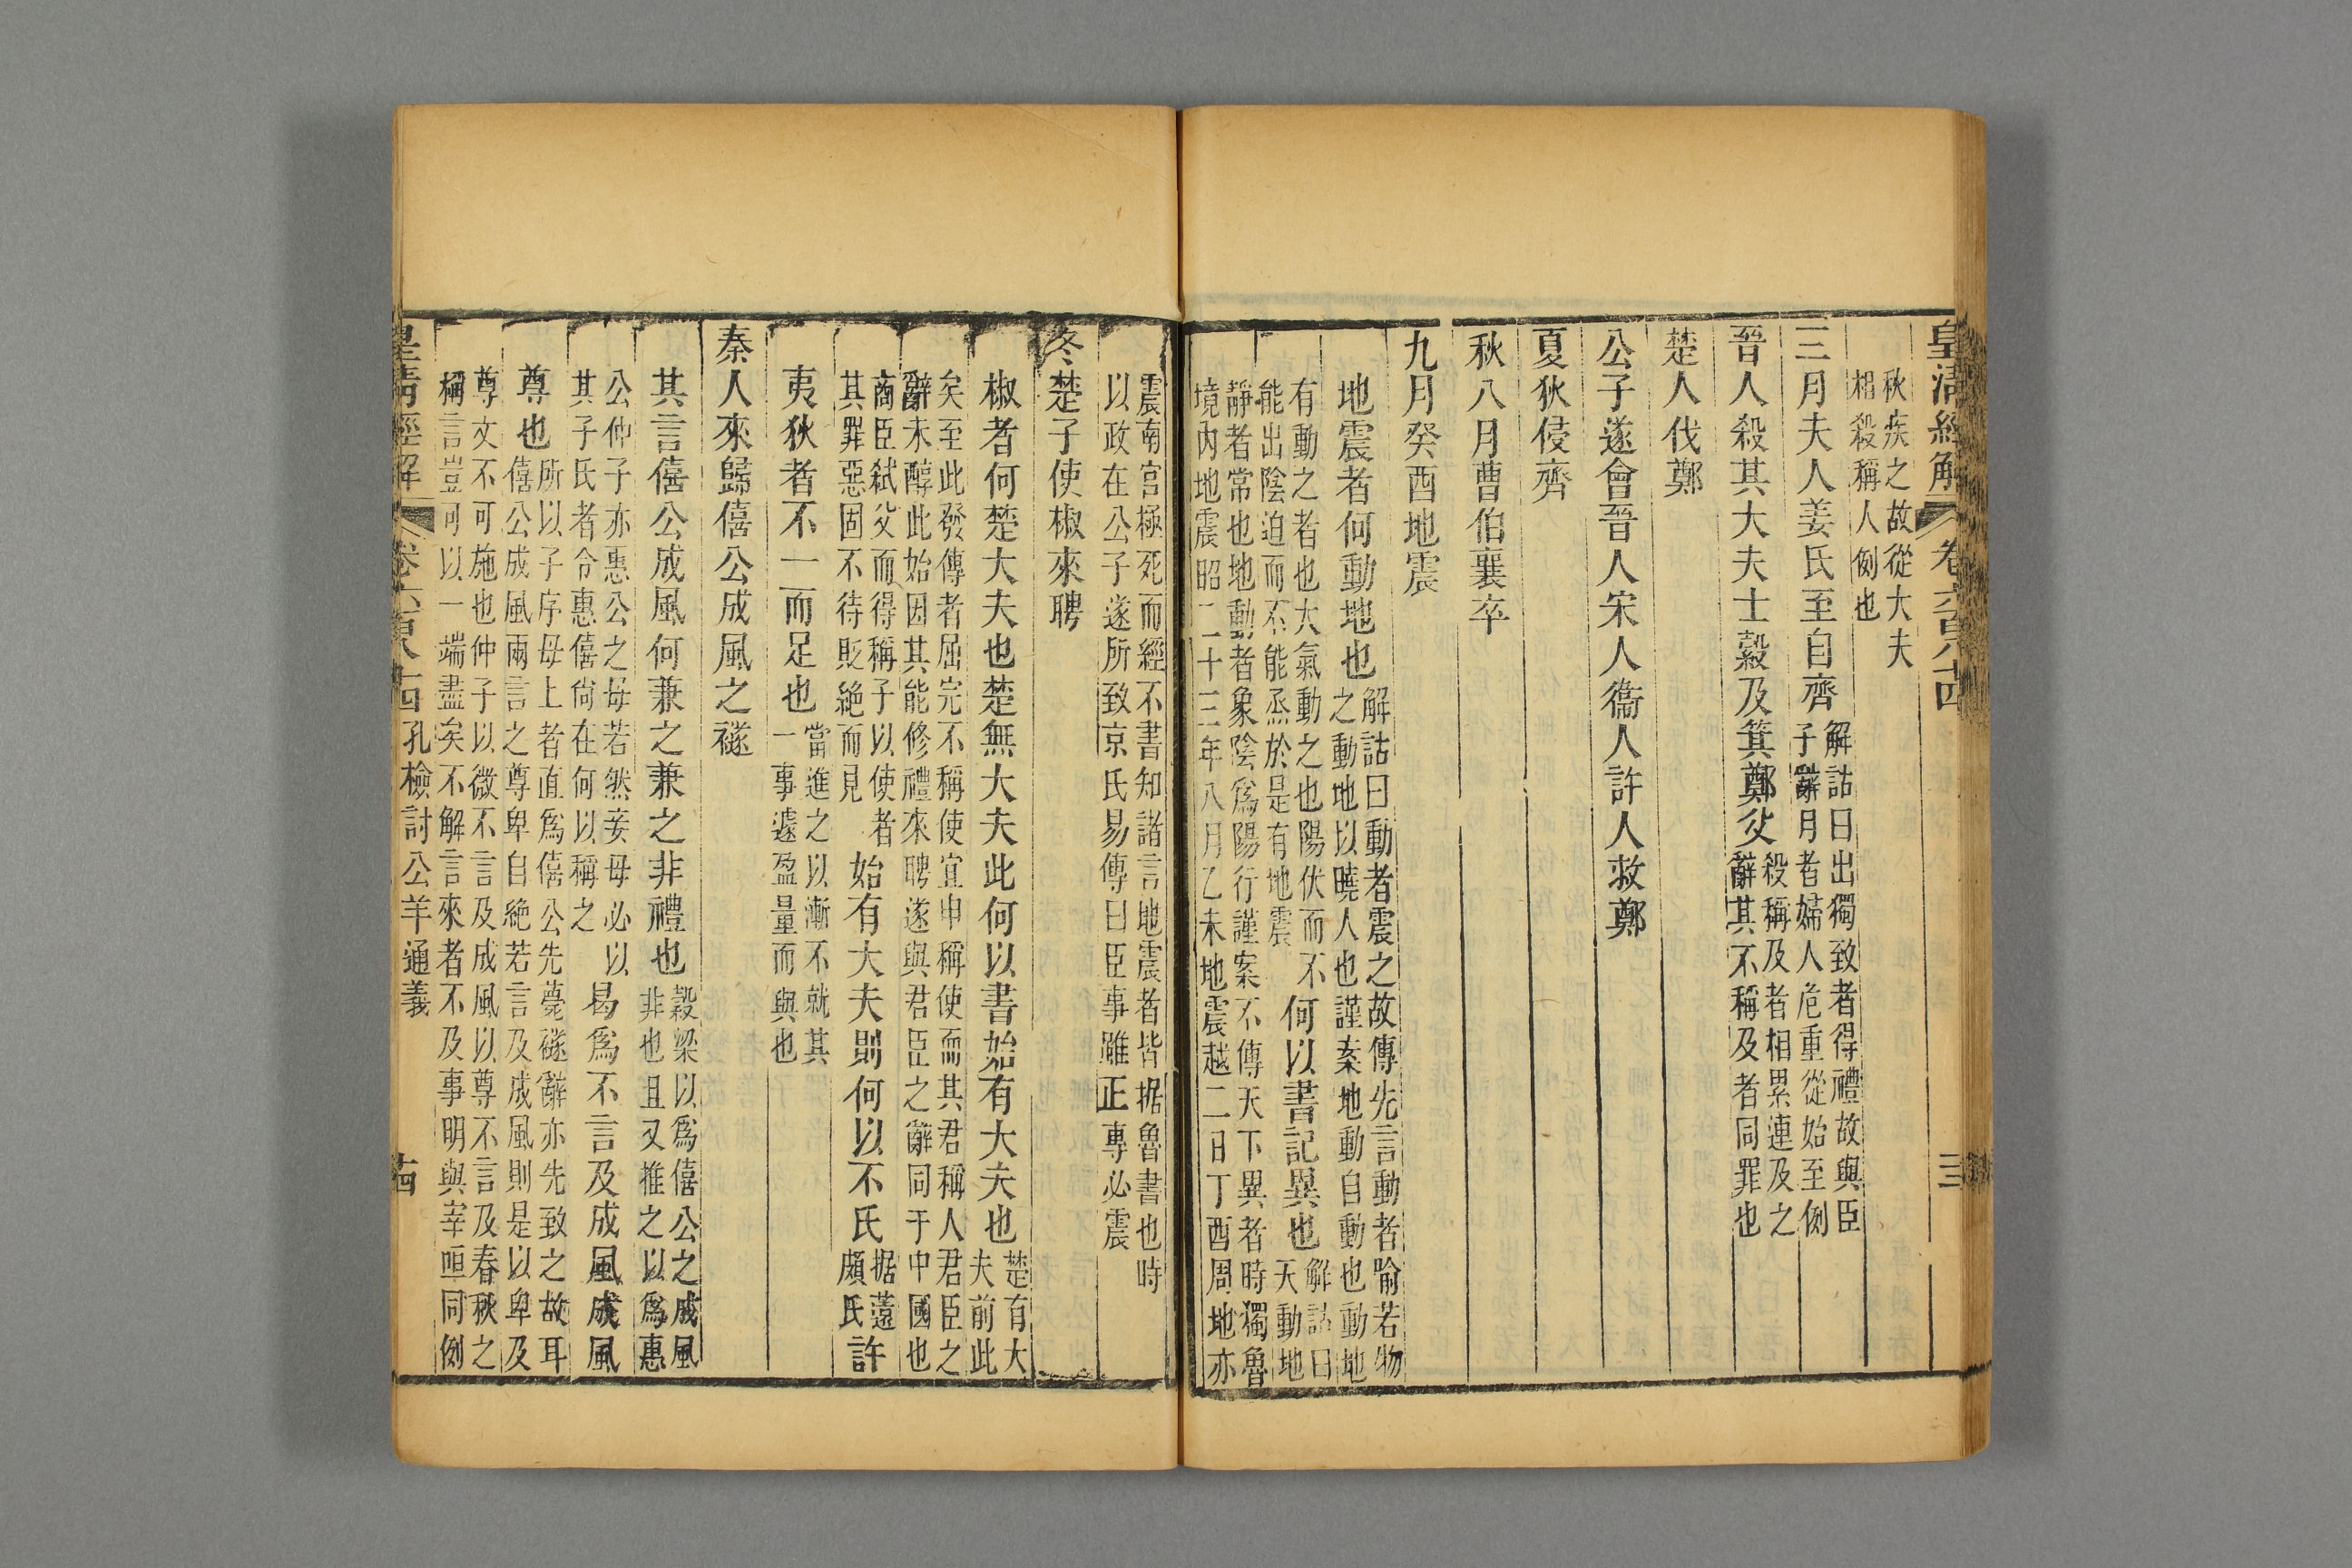 皇清經解 卷六百八十四 三
秋疾之故從大夫
相殺稱人例也
三月夫人姜氏至自齊 解詁曰出獨致者得禮故與臣
子辭月者婦人危重從始至例
晉人殺其大夫士縠及箕鄭父 殺稱及者相累連及之
辭其不稱及者同罪也
楚人伐鄭
公子遂會晉人宋人衞人許人救鄭
夏狄侵齊
秋八月曹伯襄卒
九月癸酉地震
地震者何動地也 解詁曰動者震之故傳先言動者喻若物
之動地以曉人也謹案地動自動也動地
有動之者也大氣動之也陽伏而不
能出陰迫而不能烝於是有地震 何以書記異也 解詁曰
天動地
靜者常也地動者象陰爲陽行謹案不傳天下異者時獨魯
境內地震昭二十三年八月乙未地震越二日丁酉周地亦
震南宮極死而經不書知諸言地震者皆据魯書也時
以政在公子遂所致京氏易傳曰臣事雖正專必震
冬楚子使椒來聘
椒者何楚大夫也楚無大夫此何以書始有大夫也 楚有大
夫前此
矣至此發傳者屈完不稱使宜申稱使而其君稱人君臣之
辭未醇此始因其能修禮來聘遂與君臣之辭同于中國也
商臣弒父而得稱子以使者
其罪惡固不待貶絕而見 始有大夫則何以不氏 据薳
頗氏 許
夷狄者不一而足也 當進之以漸不就其
一事遽盈量而與也
秦人來歸僖公成風之襚
其言僖公成風何兼之兼之非禮也 穀梁以爲僖公之成風
非也且又推之以爲惠
公仲子亦惠公之母若然妾母必以
其子氏者令惠僖尙在何以稱之 曷爲不言及成風成風
尊也 所以子序母上者直爲僖公先薨襚辭亦先致之故耳
僖公成風兩言之尊卑自絕若言及成風則是以卑及
尊文不可施也仲子以微不言及成風以尊不言及春秋之
稱言豈可以一端盡矣不解言來者不及事明與宰咺同例
皇清經解 卷六百八十四 孔檢討公羊通義 十四